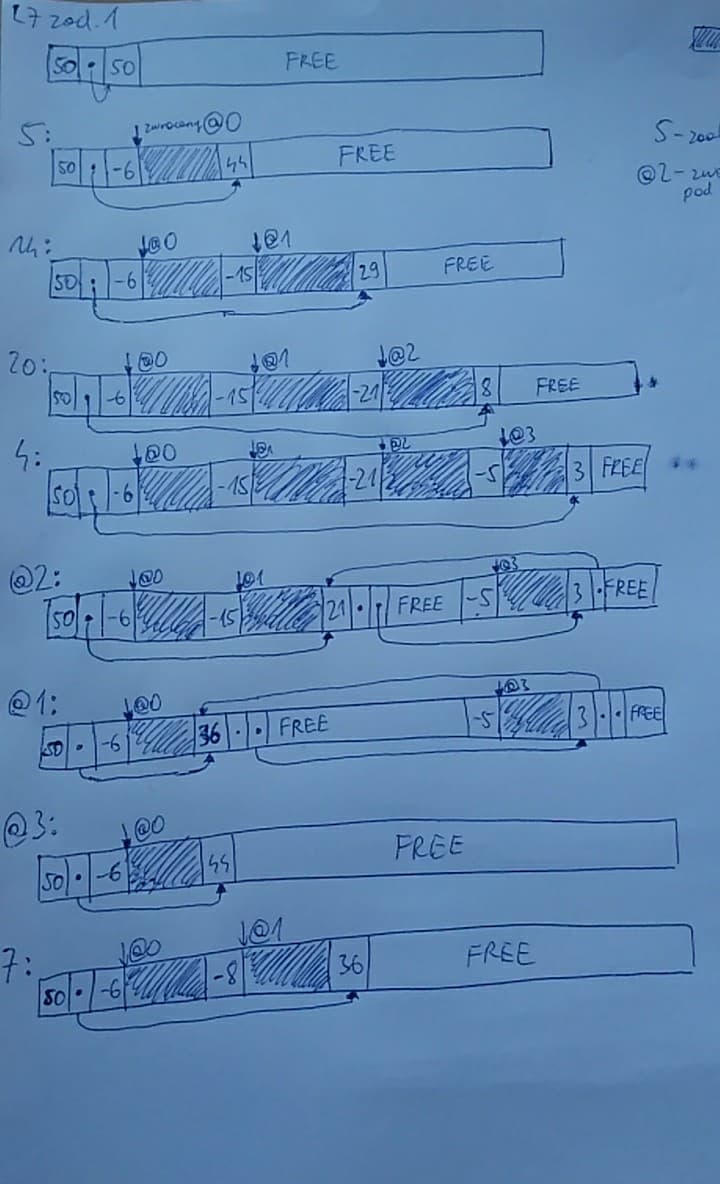 L7 zad. 1
50 50 FREE
5: zwrócony @0
50 -6 44 FREE
5-
@2-
pod
14: @0 @1
50 -6 -15 29 FREE
20: @0 @1 @2
50 -6 -15 -21 8 FREE *
4: @0 @1 @2 @3
50 -6 -15 -21 -5 3 FREE **
@2: @0 @1 @3
50 -6 -15 21 FREE -5 3 FREE
@1: @0 @3
50 -6 36 FREE -5 3 FREE
@3: @0
50 -6 44 FREE
7: @0 @1
50 -6 -8 36 FREE